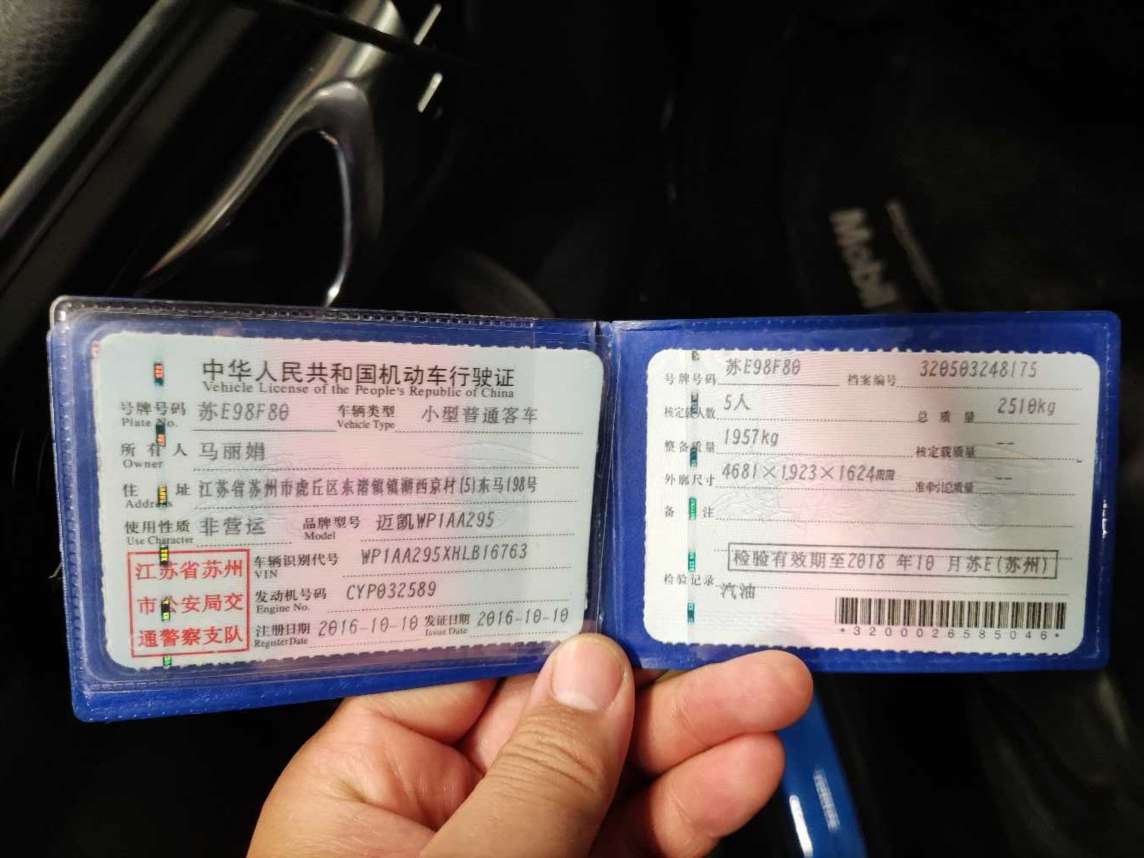 中华人民共和国机动车行驶证
Vehicle License of the People's Republic of China
号牌号码 苏E98F80 车辆类型 小型普通客车
Plate No. Vehicle Type
所有人 马丽娟
Owner
住址 江苏省苏州市虎丘区东渚镇镇湖西京村(5)东马198号
Address
使用性质 非营运 品牌型号 迈凯WP1AA295
Use Character Model
江苏省苏州
市公安局交
通警察支队
车辆识别代号 WP1AA295XHLB16763
VIN
发动机号码 CYP032589
Engine No.
注册日期 2016-10-10 发证日期 2016-10-10
Register Date Issue Date
号牌号码 苏E98F80 档案编号 320503248175
核定载人数 5人 总质量 2510kg
整备质量 1957kg 核定载质量 --
外廓尺寸 4681×1923×1624 准牵引总质量 --
备注
检验有效期至2018年10月苏E(苏州)
检验记录 汽油
*3200026585046*
Mobil